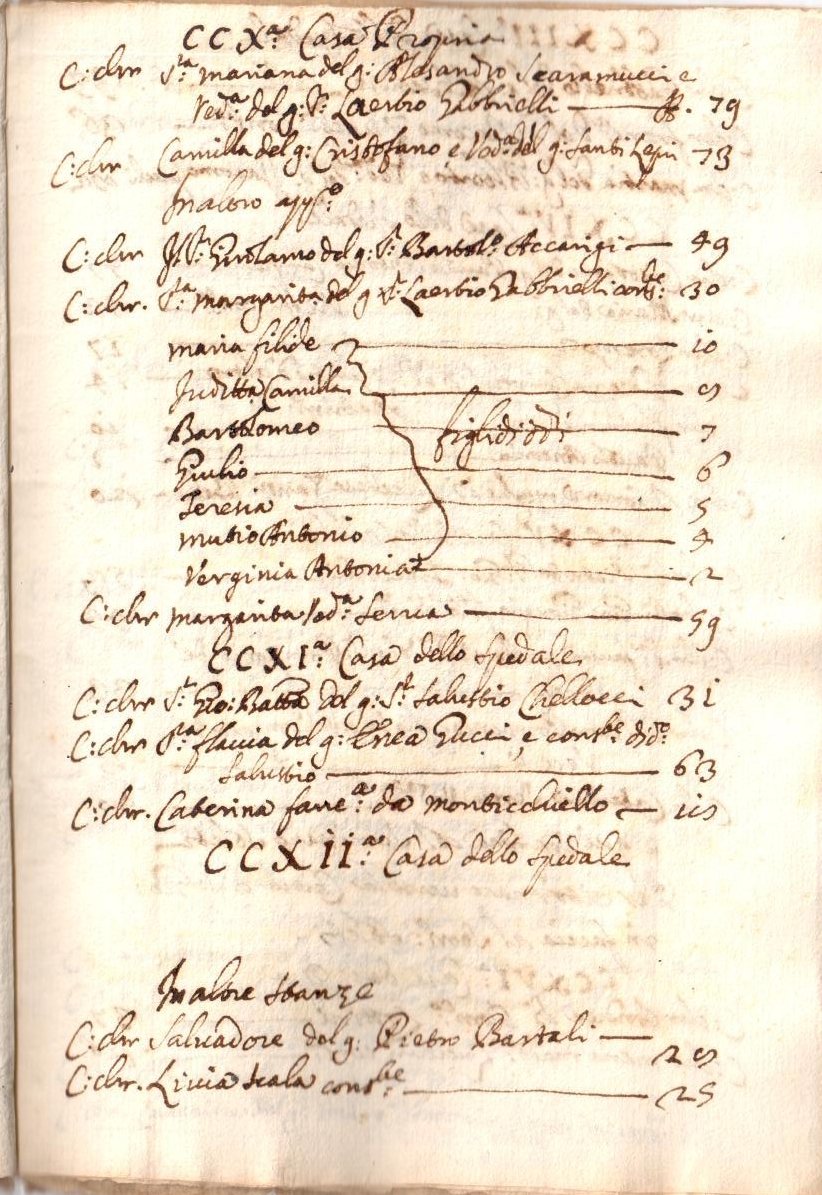 CCXª: Casa Propria
C: chr Sʳª mariana del g: Alesandro Scaramucci e
Vedª: del g: Sʳ: Laertio Gabbrielli — 79
C: chr Camilla del g: Cristofano e Vedª: del g: Santi Lepri 73
In altro appº:
C: chr Il Sʳ: Girolamo del g: Sʳ: Bartolº: Accarigi — 49
C: chr. Sʳª margarita del g Sʳ: Laertio Gabbrielli consᵗᵉ: 30
maria filide — 10
Juditta Camilla — 9
Bartolomeo — 7
figli di dᵈⁱ
Giulio — 6
Teresia — 5
mutio Antonio — 4
Verginia Antonia — 2
C: chr margarita Vedª: Serua — 59
CCXIª: Casa dello Spedale
C: chr Sʳ: Gio: Batta del g: Sʳ: Salustio Chellocci 31
C: chr Sʳª flauia del g: Enea Gucci, e consᵗᵉ: di dº:
Salustio — 63
C: chr. Caterina fanᶜª: da monticchiello — 19
CCXiiª: Casa dello Spedale
In altre stanze
C: chr Saluadore del g: Pietro Bartali —
29
C: chr. Liuia Scala consᵗᵉ: — 25